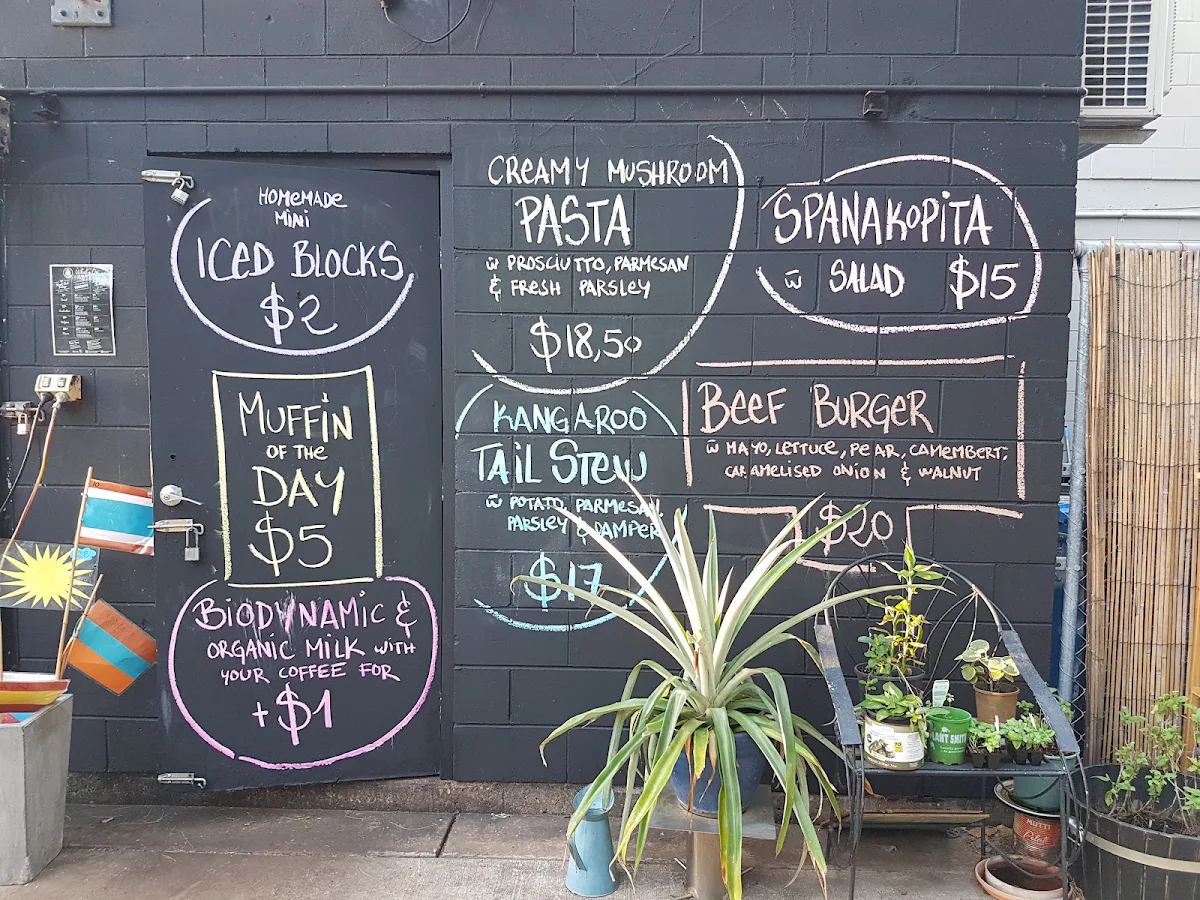 HOMEMADE
MINI
ICED BLOCKS
$2
MUFFIN
OF THE
DAY
$5
BIODYNAMIC &
ORGANIC MILK WITH
YOUR COFFEE FOR
+$1
CREAMY MUSHROOM
PASTA
w̄ PROSCIUTTO, PARMESAN
& FRESH PARSLEY
$18,50
SPANAKOPITA
w̄ SALAD $15
KANGAROO
TAIL STEW
w̄ POTATO, PARMESAN,
PARSLEY & DAMPER
$17
BEEF BURGER
w̄ MAYO, LETTUCE, PEAR, CAMEMBERT,
CARAMELISED ONION & WALNUT
$20
PLANT SMITH
MUTTI